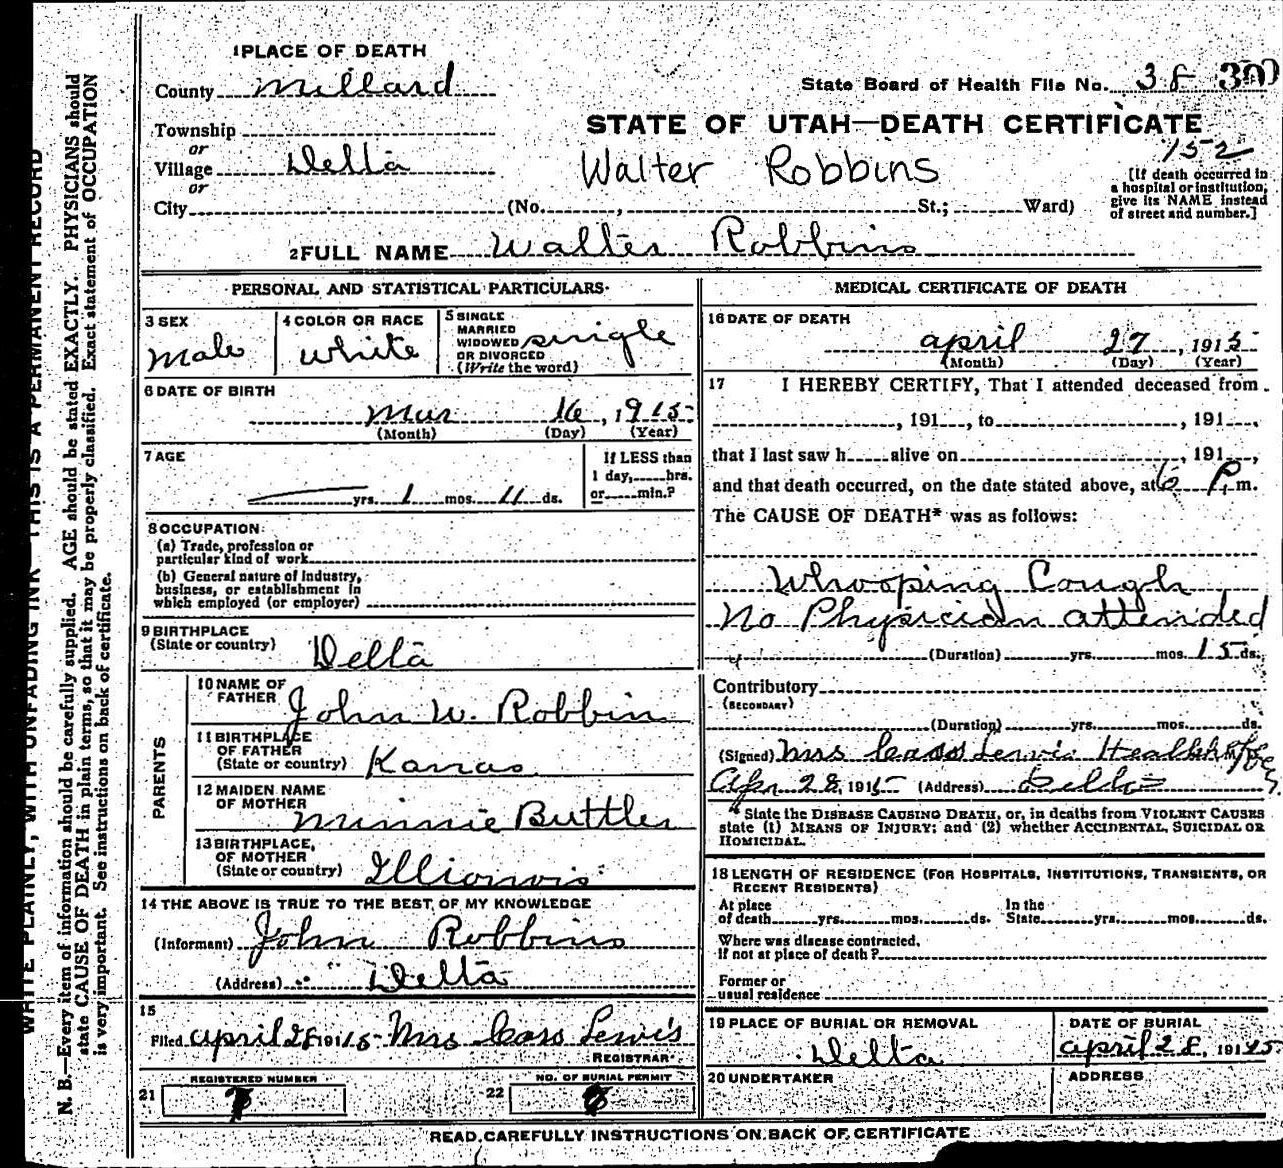 1 PLACE OF DEATH
County Millard
State Board of Health File No. 38 300
STATE OF UTAH—DEATH CERTIFICATE
152
Township
or
Village Delta
or
Walter Robbins
[If death occurred in a hospital or institution, give its NAME instead of street and number.]
City (No. , St.; Ward)
2 FULL NAME Walter Robbins
PERSONAL AND STATISTICAL PARTICULARS
3 SEX
Male
4 COLOR OR RACE
White
5 SINGLE
MARRIED
WIDOWED
OR DIVORCED
(Write the word)
single
6 DATE OF BIRTH
Mar 16, 1915
(Month) (Day) (Year)
7 AGE
yrs. 1 mos. 11 ds.
If LESS than
1 day, hrs.
or min.?
8 OCCUPATION
(a) Trade, profession or
particular kind of work
(b) General nature of industry,
business, or establishment in
which employed (or employer)
9 BIRTHPLACE
(State or country)
Delta
PARENTS
10 NAME OF
FATHER
John W. Robbins
11 BIRTHPLACE
OF FATHER
(State or country)
Kansas
12 MAIDEN NAME
OF MOTHER
Minnie Buttler
13 BIRTHPLACE,
OF MOTHER
(State or country)
Illionois
14 THE ABOVE IS TRUE TO THE BEST OF MY KNOWLEDGE
(Informant) John Robbins
(Address) Delta
15
Filed April 28 1915 Mrs Cass Lewis
REGISTRAR
21 REGISTERED NUMBER
22 NO. OF BURIAL PERMIT
8
MEDICAL CERTIFICATE OF DEATH
16 DATE OF DEATH
April 27, 1915
(Month) (Day) (Year)
17 I HEREBY CERTIFY, That I attended deceased from
, 191 , to , 191 ,
that I last saw h alive on , 191 ,
and that death occurred, on the date stated above, at 6 P. m.
The CAUSE OF DEATH* was as follows:
Whooping Cough
No Physician attended
(Duration) yrs. mos. 15 ds.
Contributory
(SECONDARY)
(Duration) yrs. mos. ds.
(Signed) Mrs Cass Lewis Health
Apr 28, 1915 (Address) Delta
* State the DISEASE CAUSING DEATH, or, in deaths from VIOLENT CAUSES
state (1) MEANS OF INJURY; and (2) whether ACCIDENTAL, SUICIDAL OR
HOMICIDAL.
18 LENGTH OF RESIDENCE (FOR HOSPITALS, INSTITUTIONS, TRANSIENTS, OR
RECENT RESIDENTS)
At place
of death yrs. mos. ds.
In the
State yrs. mos. ds.
Where was disease contracted,
if not at place of death?
Former or
usual residence
19 PLACE OF BURIAL OR REMOVAL
Delta
DATE OF BURIAL
April 28, 1915
20 UNDERTAKER
ADDRESS
READ CAREFULLY INSTRUCTIONS ON BACK OF CERTIFICATE
WRITE PLAINLY, WITH UNFADING INK—THIS IS A PERMANENT RECORD
N. B.—Every item of information should be carefully supplied. AGE should be stated EXACTLY. PHYSICIANS should
state CAUSE OF DEATH in plain terms, so that it may be properly classified. Exact statement of OCCUPATION
is very important. See instructions on back of certificate.